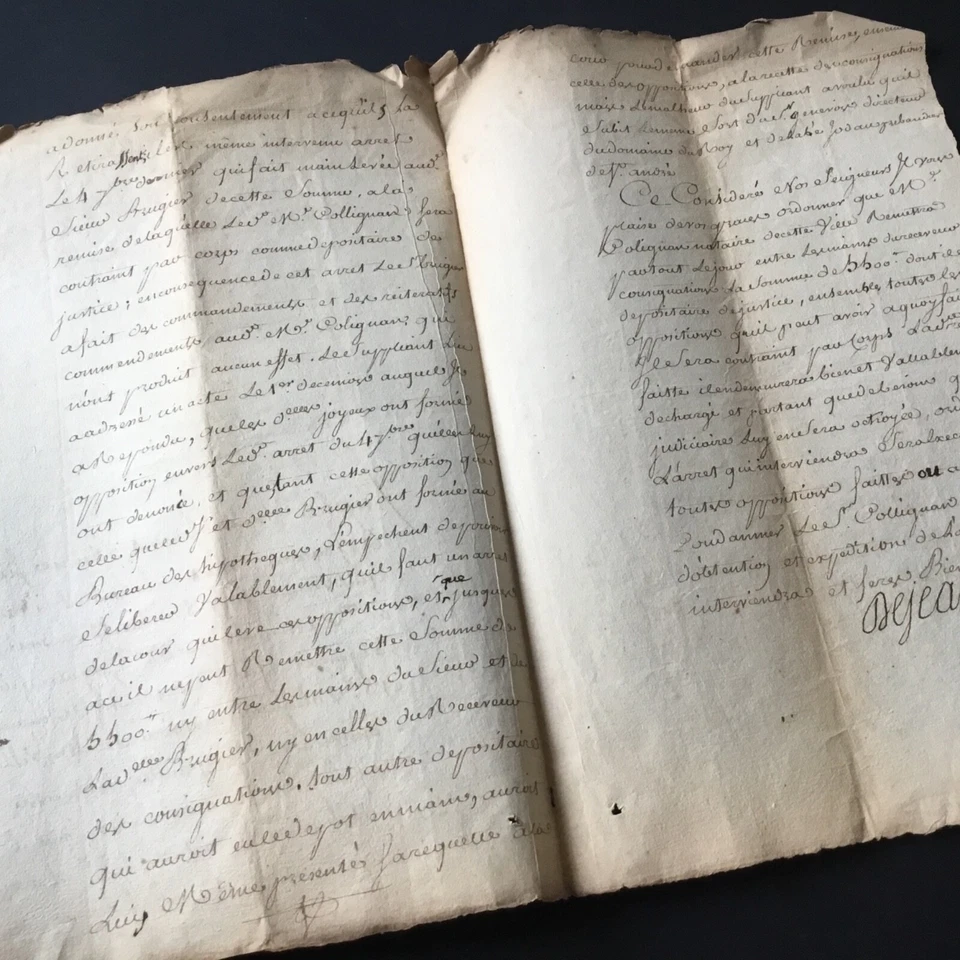 adonné son consentement acequil la
Retirassent, lors même intervenu arrest
Le 4 7bre dernier quifait mainlevée aud.
Sieur Brugier decette Somme, ala
remise delaquelle Led.r M.r Collignan Sera
contraint par corps comme depositaire de
justice; enconsequence de cet arret Le S.r Brugier
afait des commandements et des reiteratifs
commendements aud.t M.r Colignan, qui
n'ont produit aucun effet. Le Suppliant Luy
aadressé un acte Le 1er decembre auquel Jl
aRepondu, que Les d.elles joyeux ont formé
opposition envers Led.t arret du 4 7bre quelles luy
ont denoncé et questant cette opposition que
celle queled.t et d.elle Brugier ont formée au
Bureau des hypotheques, L'empechent depouvoir
Selibérer Valablement, quil faut un arret
delacour quileve ces oppositions, et que jusques
aceil nepeut Remettre cette Somme de
5500tt ny entre Les mains du Sieur et de
La d.elle Brugier, ny en celles du Receveur
des consignations. tout autre depositaire
qui auroit eu led depot enmains, auroit
Luy Même presenté Sa requette ala
cour pour demander cette Remise, en
celle des oppositions, ala recette des consignations
mais Lemalheur du Suppliant a voulu quil
Subit Le meme Sort du S.r generous directeur
du domaine du Roy et de L'abbé Jodau prebandier
de S.t andré
Ce Consideré Nos Seigneurs Jl vous
plaise de vos graces ordonner que M.r
Colignan notaire decette Ville Remettra
partout Lejour entre Les mains du receveur
consignations La Somme de 5500tt dont il e
depositaire dejustice, ensemble toutes les
oppositions quil peut avoir aquoy fai
Jl Sera contraint par Corps Lad.
faitte ilendemeurera bien et Vallablem
dechargé et partant que de besoins
judiciaire Luy en Sera octroyée, or
L'arret qui interviendra Sera exec
toutes oppositions faittes ou a
Condamner Led.S.r Collignan
d'obtention et expedition de l'a
interviendra et ferez Bien
DEJEA